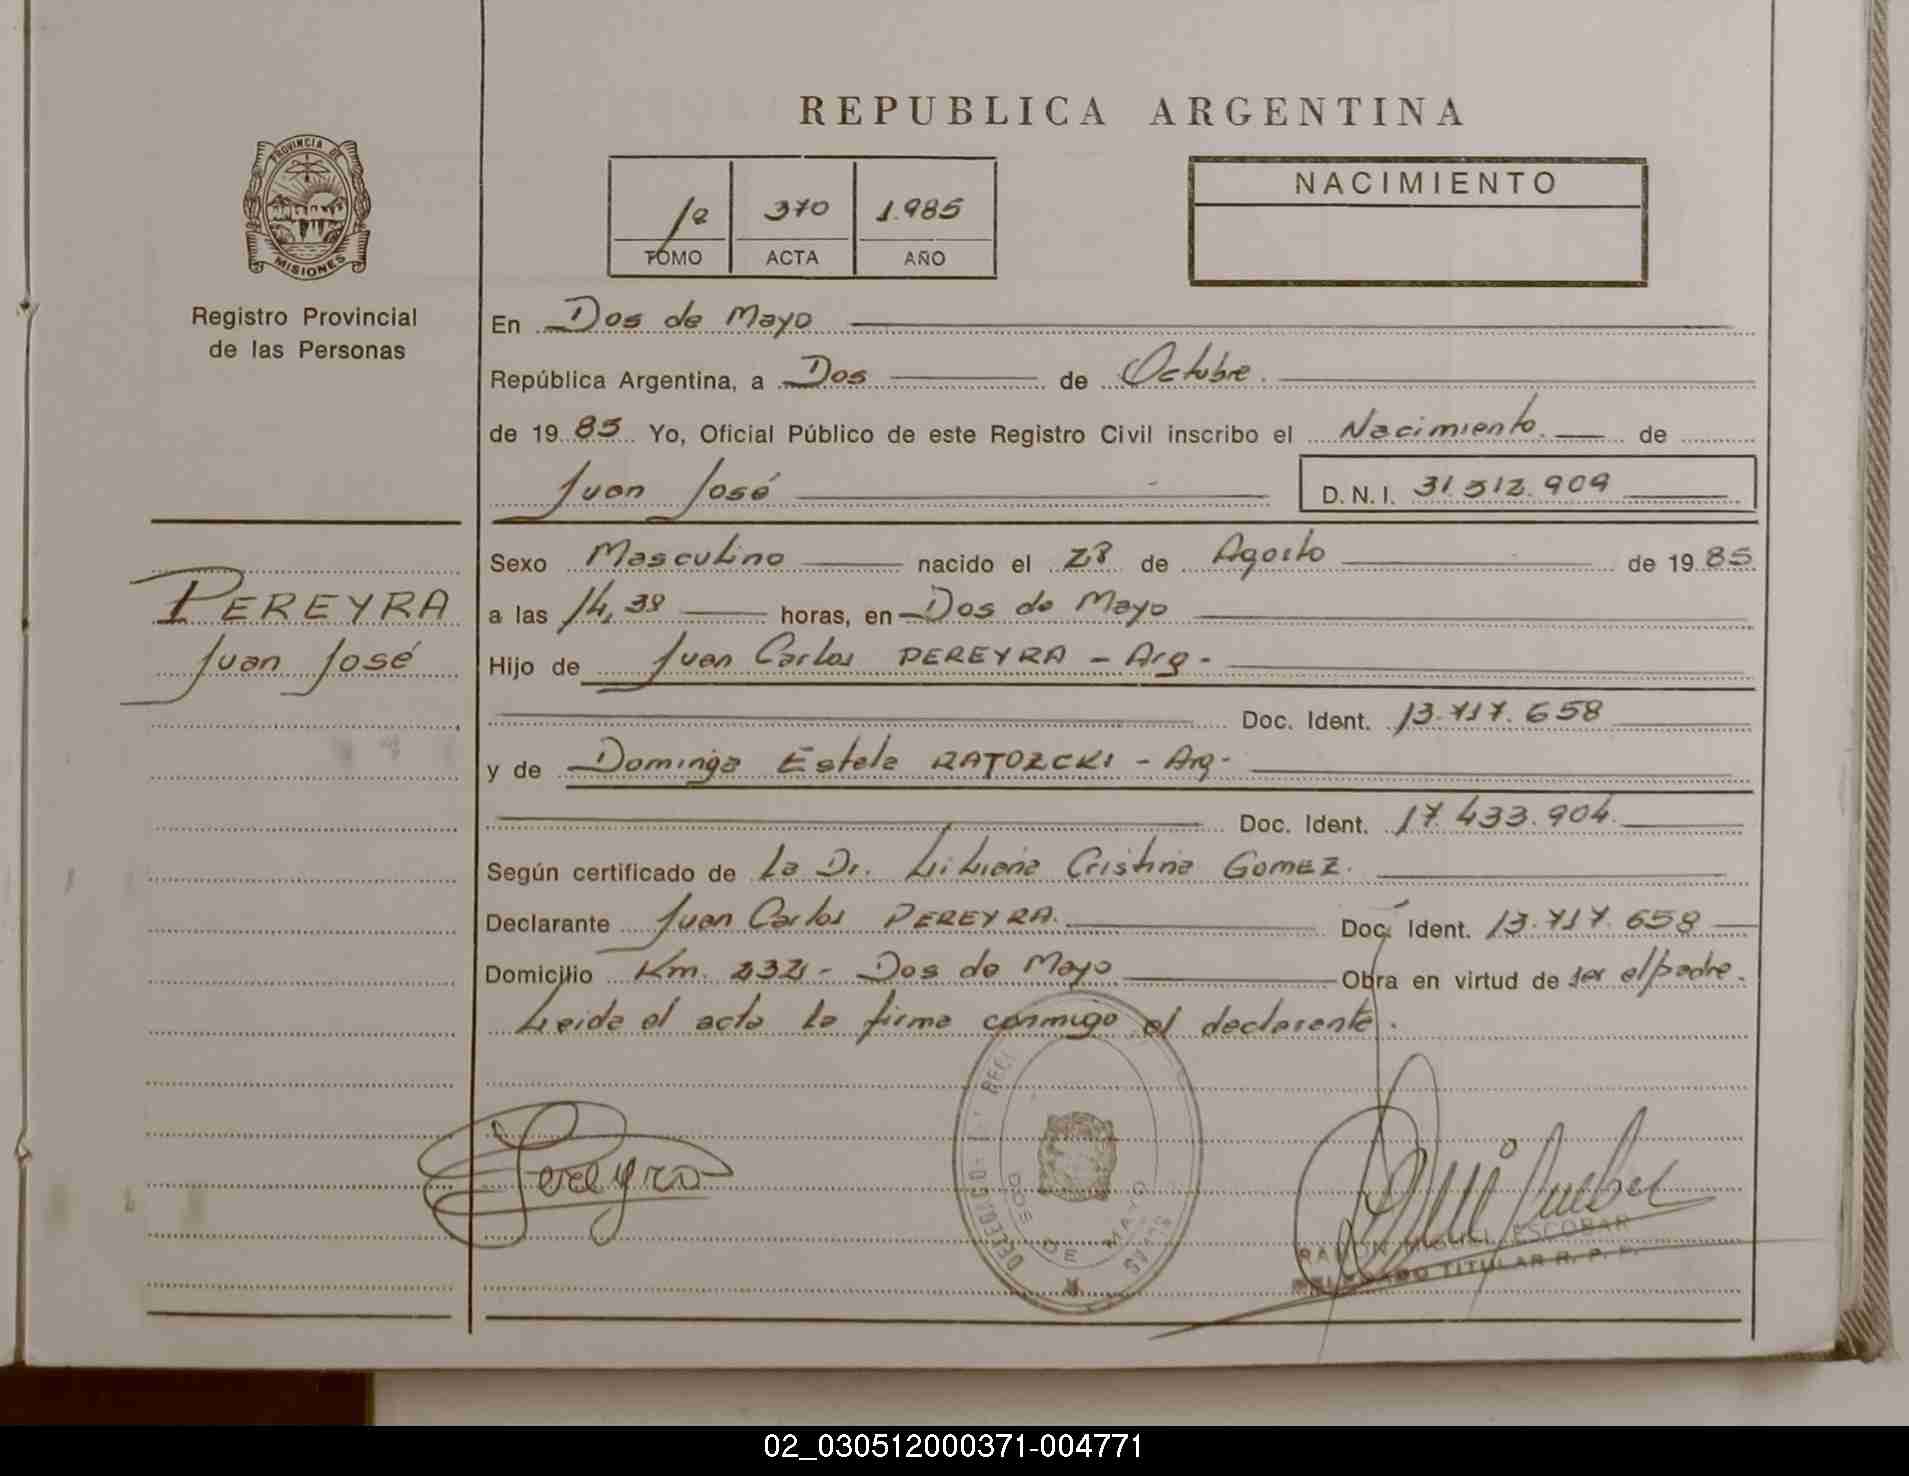 REPUBLICA ARGENTINA
PROVINCIA DE
MISIONES
Registro Provincial
de las Personas
1º 370 1.985
TOMO ACTA AÑO
NACIMIENTO
En Dos de Mayo
República Argentina, a Dos de Octubre.
de 19 85 Yo, Oficial Público de este Registro Civil inscribo el Nacimiento. de
Juan José
D.N.I. 31.512.909
PEREYRA
Juan José
Sexo Masculino nacido el 28 de Agosto de 19 85
a las 14,38 horas, en Dos de Mayo
Hijo de Juan Carlos PEREYRA - Arg -
Doc. Ident. 13.717.658
y de Dominga Estela RATOZCKI - Arg -
Doc. Ident. 17.433.904
Según certificado de La Dr. Liliana Cristina GOMEZ.
Declarante Juan Carlos PEREYRA. Doc. Ident. 13.717.658
Domicilio Km. 232 - Dos de Mayo Obra en virtud de ser el padre.
Leida el acta la firma conmigo el declarante.
Pereyra
DOS DE MAYO
RAMON MIGUEL ESCOBAR
DELEGADO TITULAR R. P. P.
02_030512000371-004771